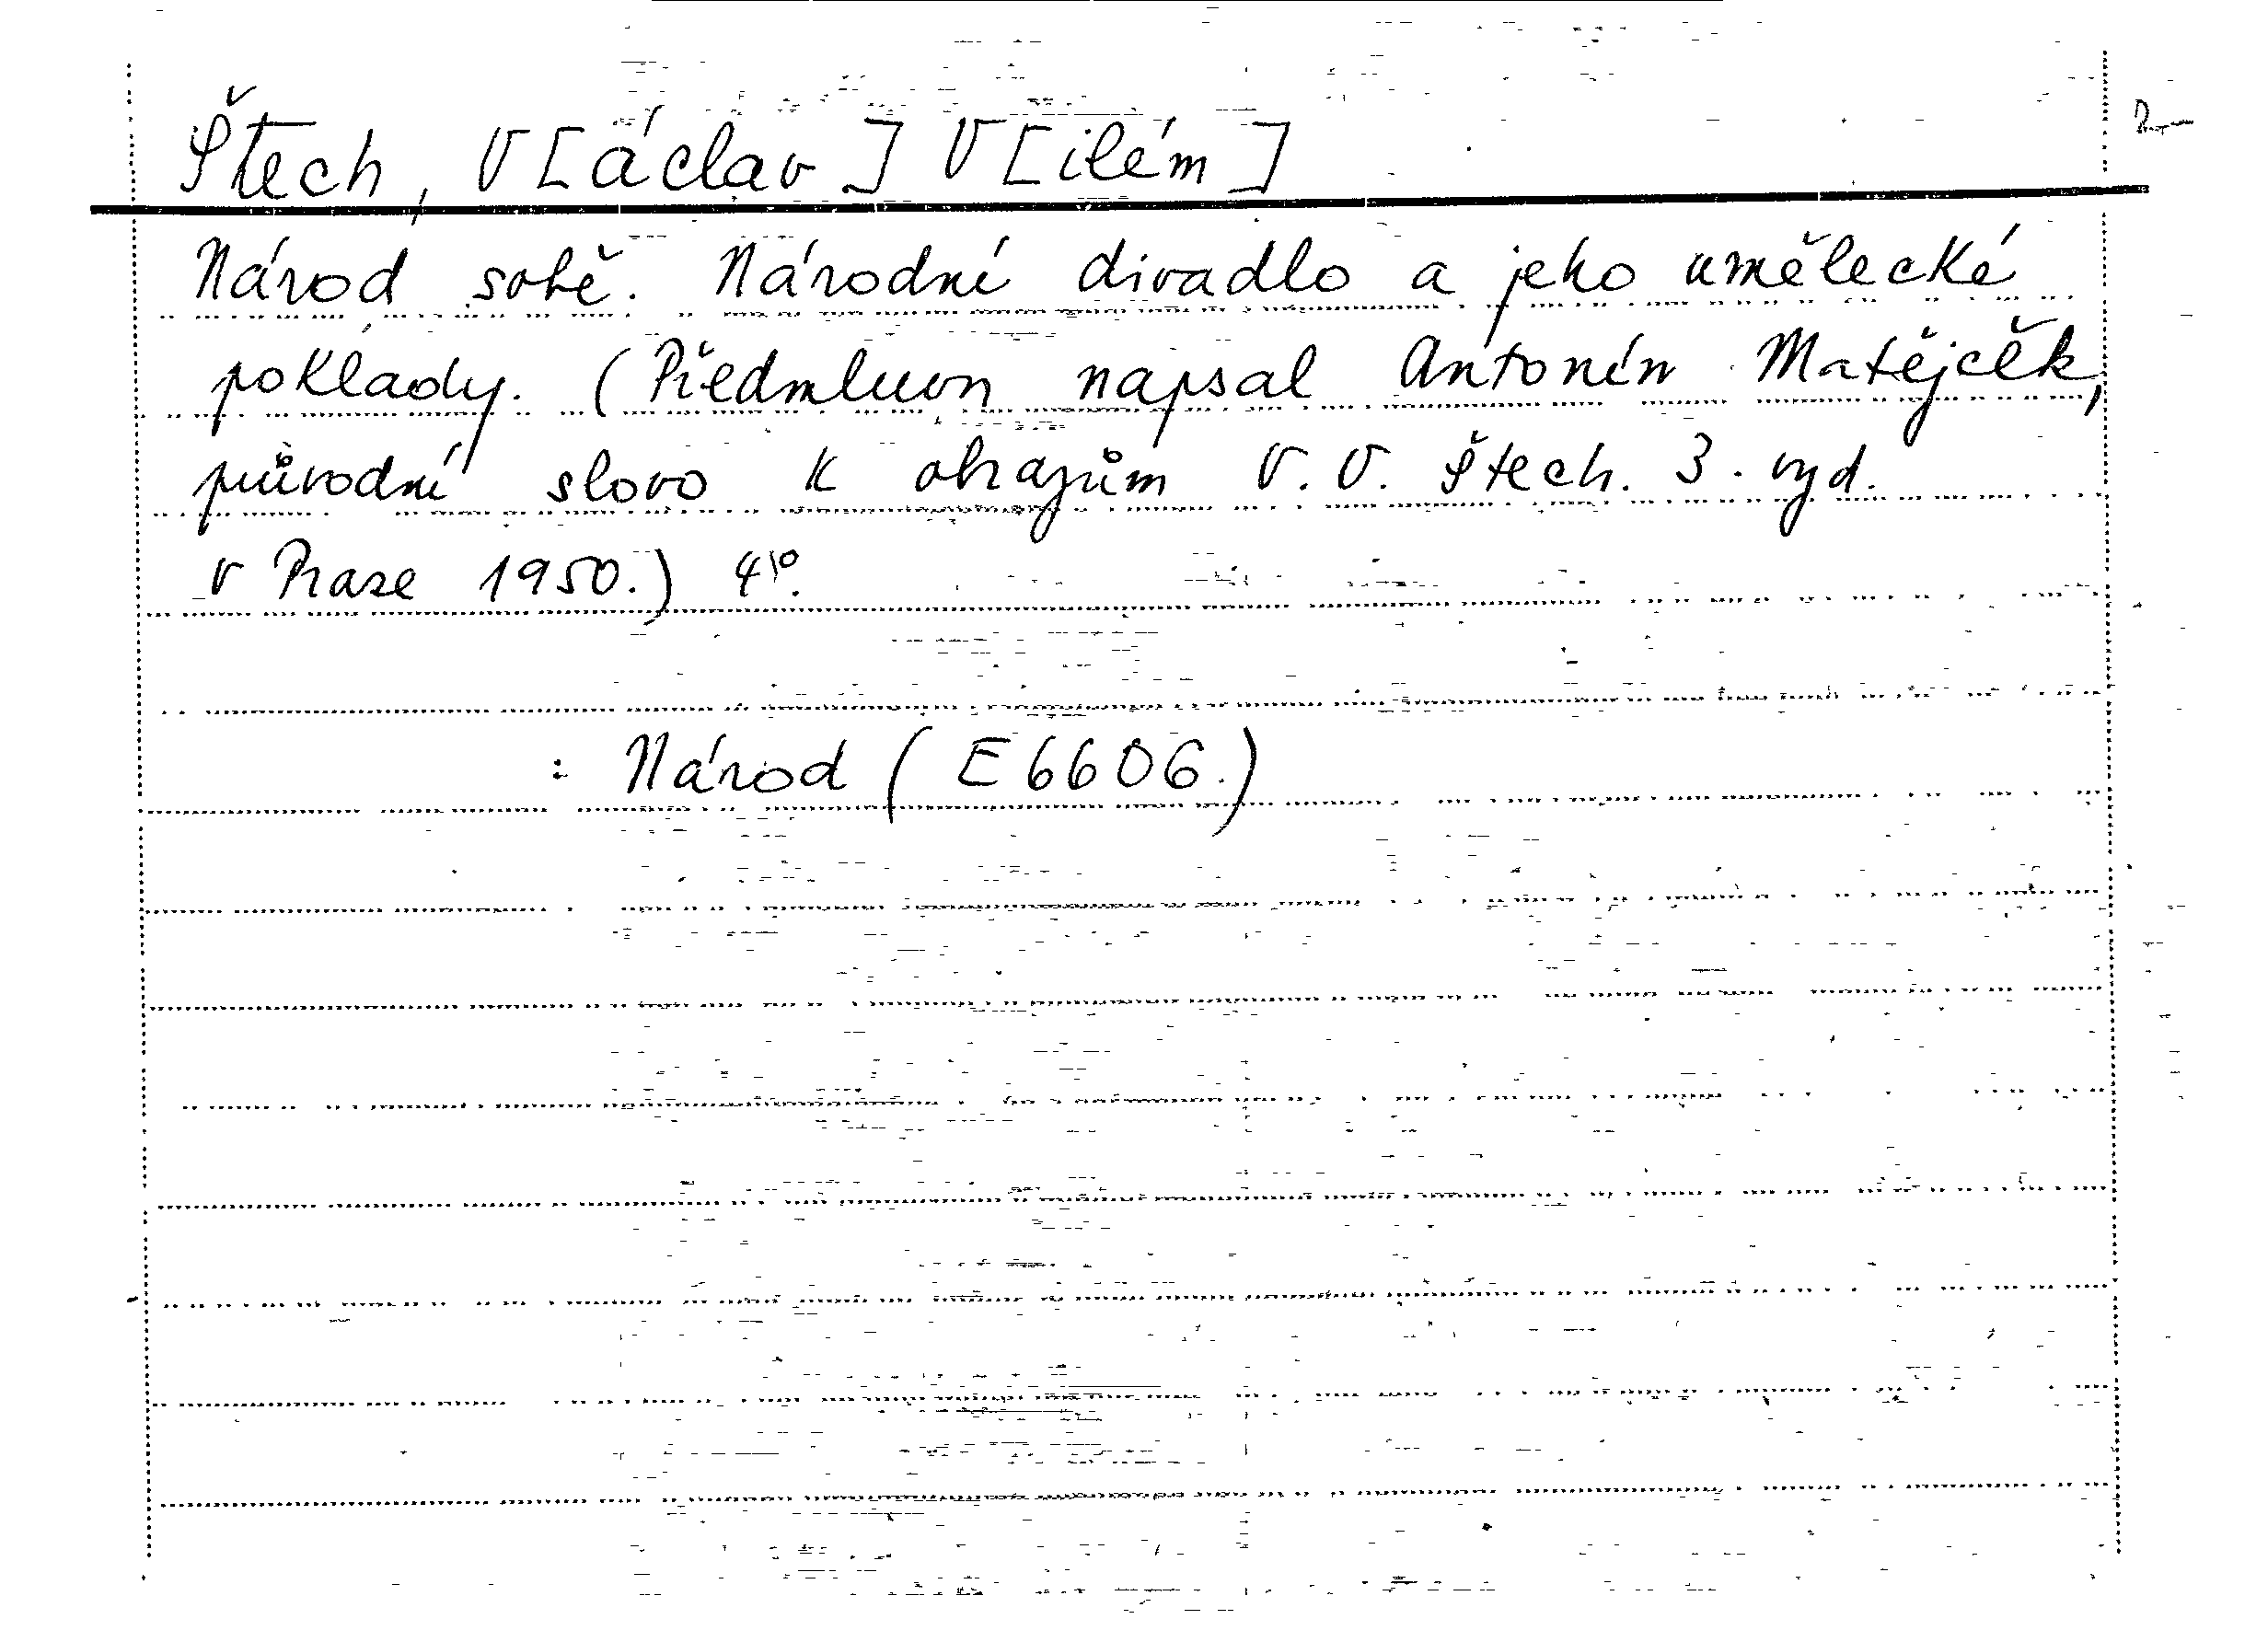 Štech, V[áclav] V[ilém]
Národ sobě. Národní divadlo a jeho umělecké
poklady. (Předmluvu napsal Antonín Matějček,
průvodní slovo k obrazům V. V. Štech. 3. vyd.
V Praze 1950.) 4°.
: Národ (E 6606.)